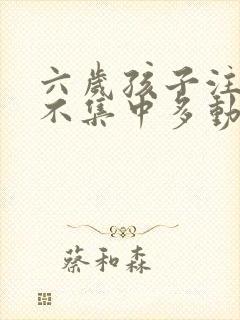 六歲孩子注
不集中多動
蔡和森